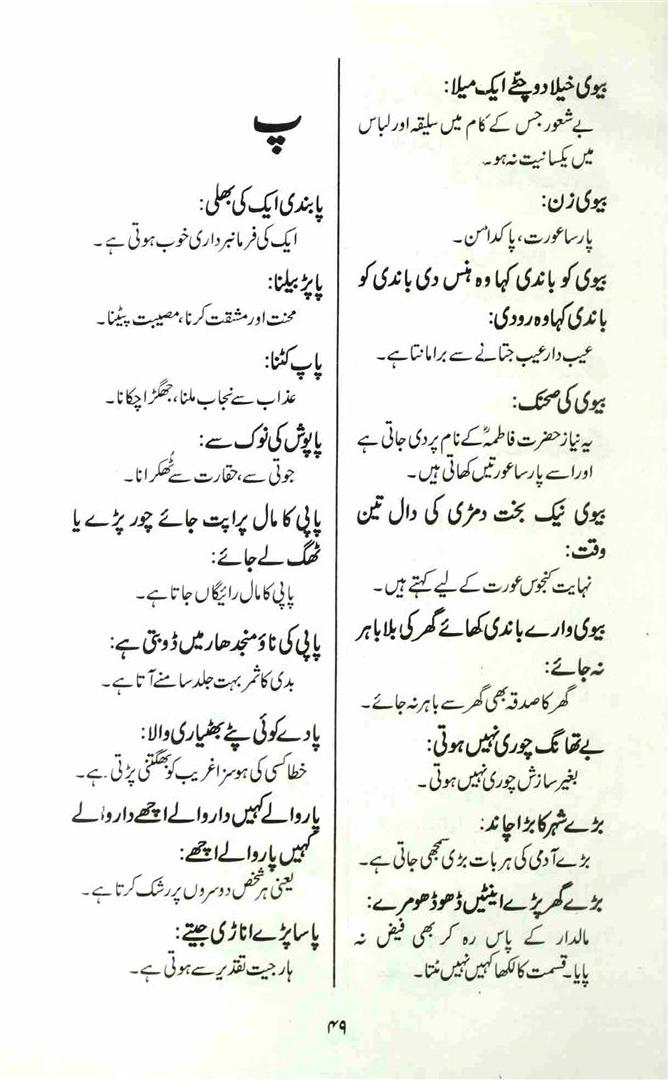 بیوی خیلا دو چٹے ایک میلا:
بے شعور جس کے کام میں سلیقہ اور لباس
میں یکسانیت نہ ہو۔
بیوی زن:
پارسا عورت، پاکدامن۔
بیوی کو باندی کہا وہ ہنس دی باندی کو
باندی کہا وہ رو دی:
عیب دار عیب جتانے سے برا مانتا ہے۔
بیوی کی صحنک:
یہ نیاز حضرت فاطمہؓ کے نام پر دی جاتی ہے
اور اسے پارسا عورتیں کھاتی ہیں۔
بیوی نیک بخت دمڑی کی دال تین
وقت:
نہایت کنجوس عورت کے لیے کہتے ہیں۔
بیوی وارے باندی کھائے گھر کی بلا باہر
نہ جائے:
گھر کا صدقہ بھی گھر سے باہر نہ جائے۔
بے تھانگ چوری نہیں ہوتی:
بغیر سازش چوری نہیں ہوتی۔
بڑے شہر کا بڑا چاند:
بڑے آدمی کی ہر بات بڑی سمجھی جاتی ہے۔
بڑے گھر پڑے اینٹیں ڈھو ڈھو مرے:
مالدار کے پاس رہ کر بھی فیض نہ
پایا۔ قسمت کا لکھا کہیں نہیں مُتا۔
پ
پابندی ایک کی بھلی:
ایک کی فرمانبرداری خوب ہوتی ہے۔
پاپڑ بیلنا:
محنت اور مشقت کرنا، مصیبت پیٹنا۔
پاپ کٹنا:
عذاب سے نجاب ملنا، جھگڑا چکانا۔
پاپوش کی نوک سے:
جوتی سے، حقارت سے ٹُھکرانا۔
پاپی کا مال پراپت جائے چور پڑے یا
ٹھگ لے جائے:
پاپی کا مال رائیگاں جاتا ہے۔
پاپی کی ناؤ منجدھار میں ڈوبتی ہے:
بدی کا ثمر بہت جلد سامنے آتا ہے۔
پادے کوئی پٹے بھٹیاری والا:
خطا کسی کی ہو سزا غریب کو بھگتنی پڑتی ہے۔
پار والے کہیں دار والے اچھے دار والے
کہیں پار والے اچھے:
یعنی ہر شخص دوسروں پر رشک کرتا ہے۔
پاسا پڑے اناڑی جیتے:
ہار جیت تقدیر سے ہوتی ہے۔
۴۹